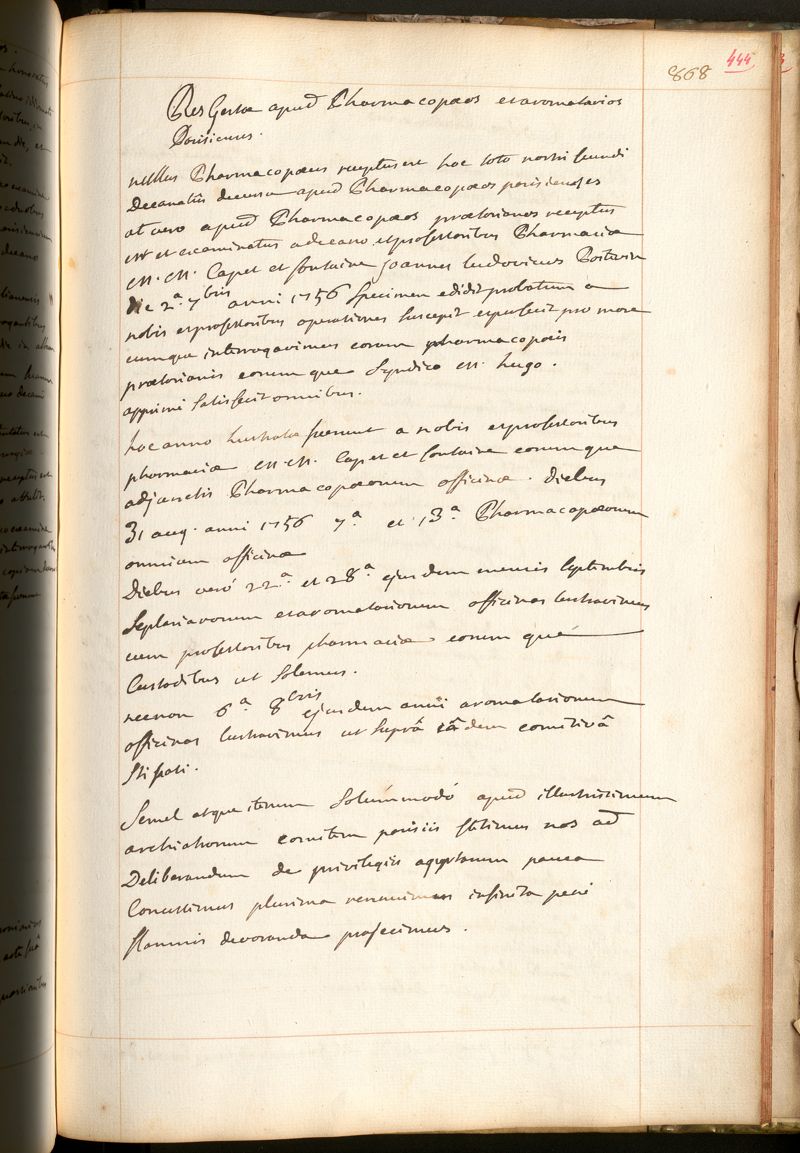 868 444
Res Gestae apud Pharmacopaeos et aromatarios
Parisienses.
nullus Pharmacopaeus receptus est hoc toto nostri secundi
Decanatus decursu apud Pharmacopaeos parisienses
at vero apud Pharmacopaeos praetorianos receptus
est et examinatus a decano et professoribus Pharmaciae
M. M. Capet et fontaine joannes ludovicus
die 2a 7bris anni 1756 Specimen edidit probatum a
nobis et professoribus operationes suscepit et perfecit pro more
eumque interrogavimus coram pharmacopaeis
praetorianis eorumque Syndico M. hugo.
apprimè Satisfecit omnibus.
hoc anno lustratae fuerunt a nobis et professoribus
pharmaciae M. M. Capet et fontaine eorumque
adjunctis Pharmacopaeorum officinae. Diebus
31 aug. anni 1756 7a et 13a Pharmacopaeorum
omnium officinae
Diebus verò 22a et 28a ejusdem mensis Septembris
Seplasiariorum et aromatariorum officinas lustravimus
cum professoribus pharmaciae eorumque
Custodibus ut Solemus.
necnon 6a 8bris ejusdem anni aromatariorum
officinas lustravimus ut suprà eâdem comitivâ
Stipati.
Semel atque iterum Solummodò apud illustrissimum
archiatrorum comitem parisiis stitimus nos ad
Deliberandum de privilegiis pauca
Concessimus plurima renuimus infinita penè
flammis devoranda projecimus.